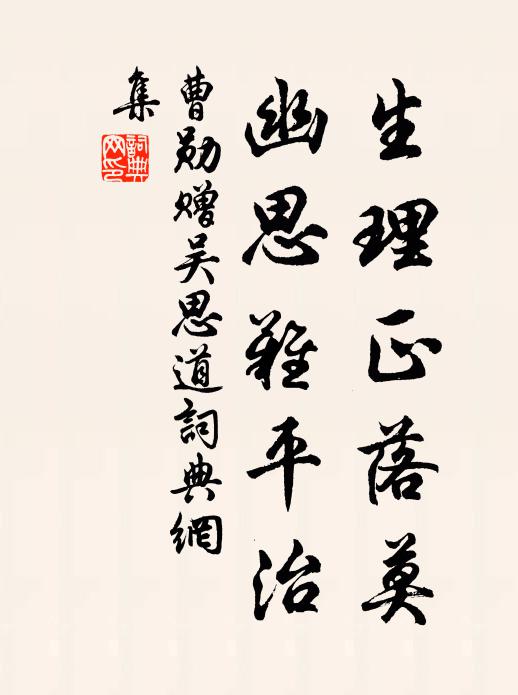 生理正落莫
幽思难平治
曹勋赠吴思道詞典網
集
詞典
网印